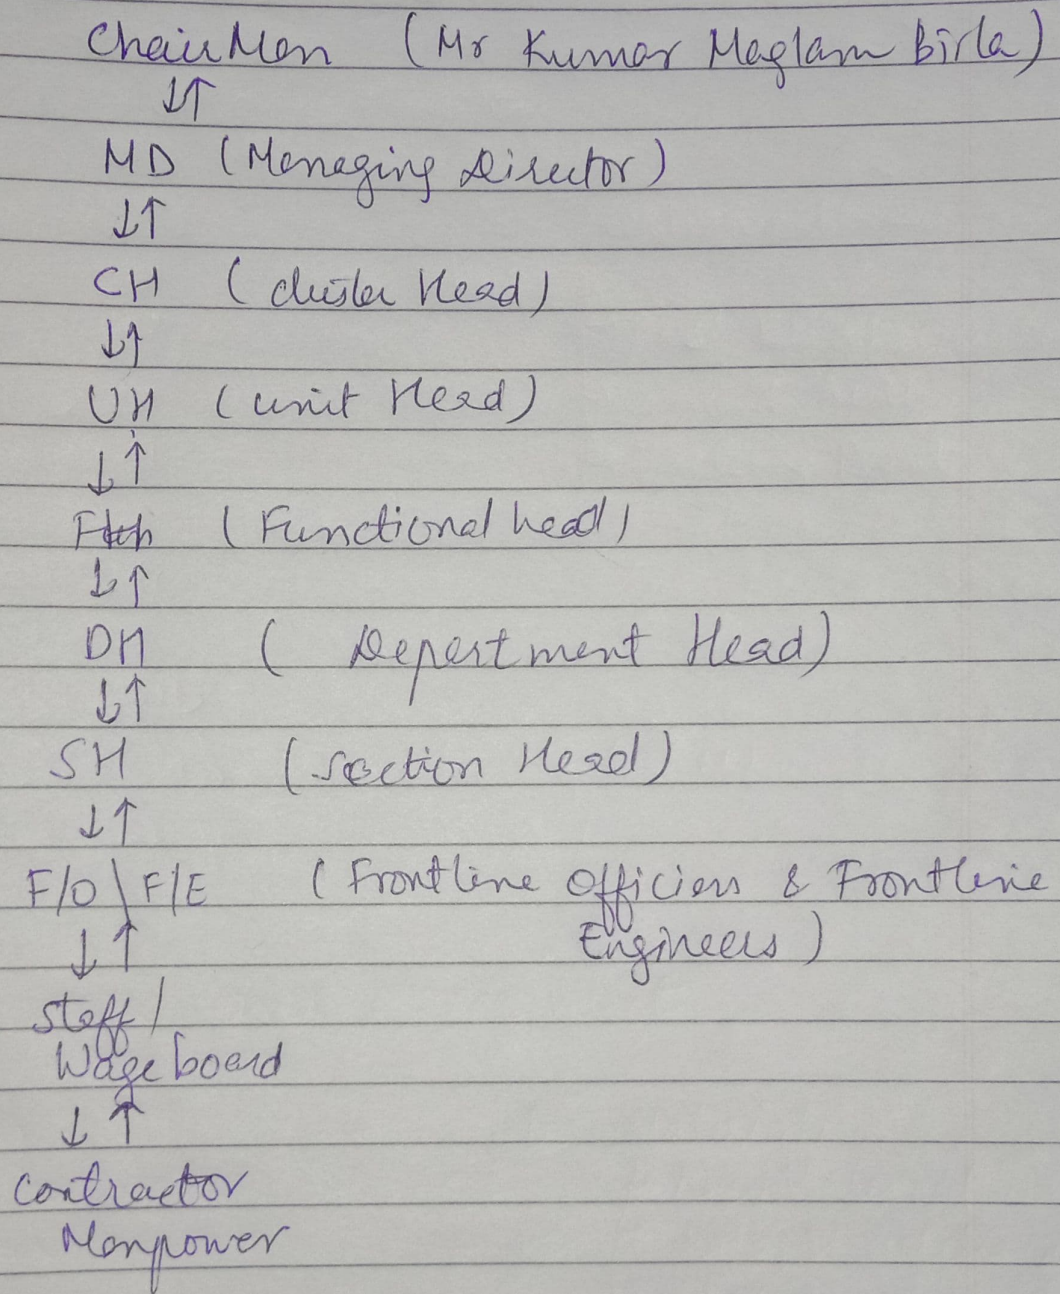 ChairMan (Mr Kumar Maglam Birla)
↓↑
MD (Managing Director)
↓↑
CH (cluster Head)
↓↑
UH (unit Head)
↓↑
FH (Functional head)
↓↑
DH ( Department Head)
↓↑
SH (section Head)
↓↑
F/O \ F/E (Frontline Officiers & Frontline
Engineers)
↓↑
Staff /
Wage board
↓↑
Contractor
Manpower